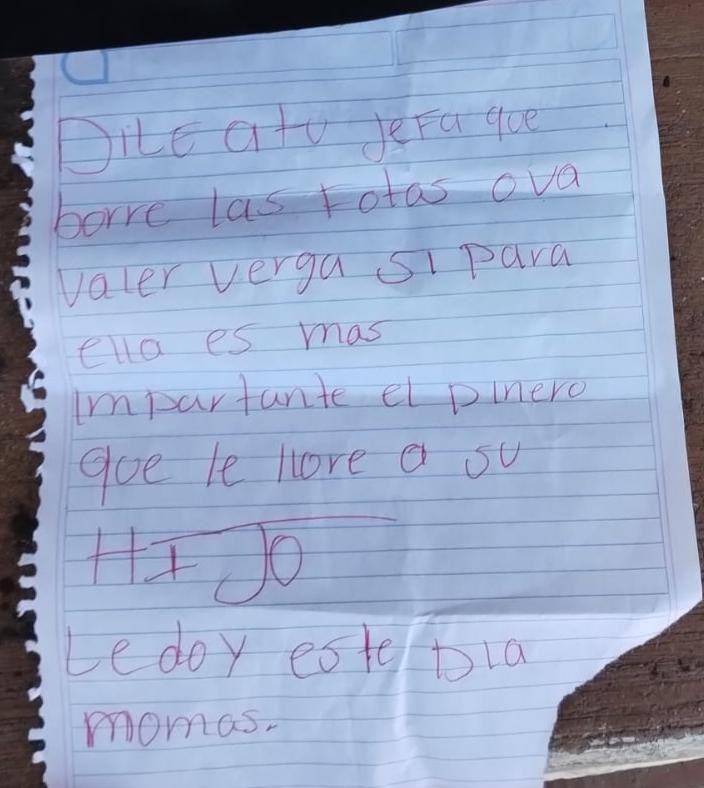 DiLE a tu jeFa que
borre las Fotas o va
valer verga si para
ella es mas
impartante el Dinero
que le llore a su
HIJO
Le doy este Dia
momas.